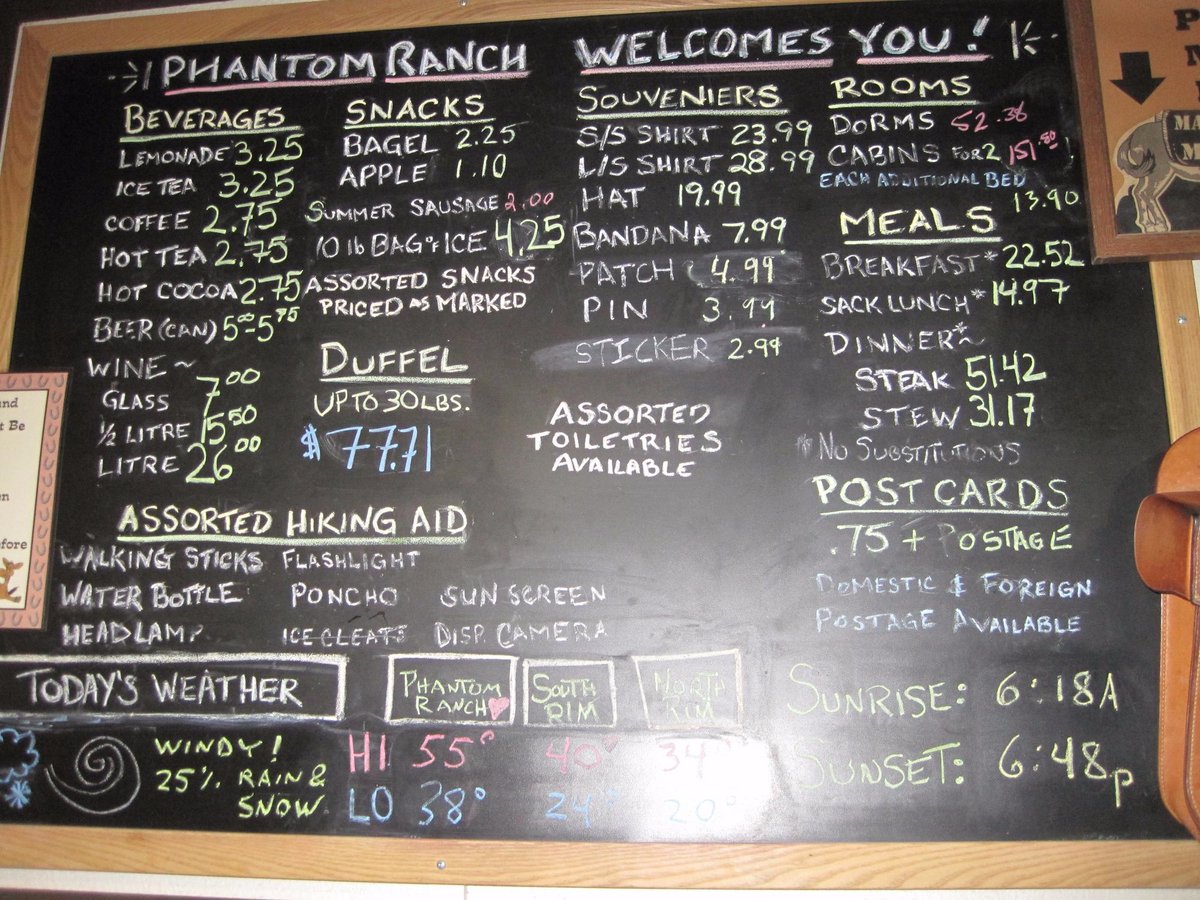 PHANTOM RANCH WELCOMES YOU!
BEVERAGES
LEMONADE 3.25
ICE TEA 3.25
COFFEE 2.75
HOT TEA 2.75
HOT COCOA 2.75
BEER (CAN) 5.00-5.75
WINE ~
GLASS 7.00
1/2 LITRE 15.50
LITRE 26.00
SNACKS
BAGEL 2.25
APPLE 1.10
SUMMER SAUSAGE 2.00
10 lb BAG of ICE 4.25
ASSORTED SNACKS
PRICED AS MARKED
DUFFEL
UP TO 30 LBS.
$ 77.71
SOUVENIERS
S/S SHIRT 23.99
L/S SHIRT 28.99
HAT 19.99
BANDANA 7.99
PATCH 4.99
PIN 3.99
STICKER 2.99
ASSORTED
TOILETRIES
AVAILABLE
ROOMS
DORMS 52.36
CABINS FOR 2 151.80
EACH ADDITIONAL BED
13.90
MEALS
BREAKFAST* 22.52
SACK LUNCH* 14.97
DINNER*~
STEAK 51.42
STEW 31.17
*NO SUBSTITUTIONS
POST CARDS
.75 + POSTAGE
DOMESTIC & FOREIGN
POSTAGE AVAILABLE
ASSORTED HIKING AID
WALKING STICKS FLASHLIGHT
WATER BOTTLE PONCHO SUN SCREEN
HEADLAMP ICE CLEATS DISP. CAMERA
TODAY'S WEATHER
PHANTOM
RANCH
SOUTH
RIM
NORTH
RIM
WINDY!
25% RAIN &
SNOW
HI 55° 40° 34°
LO 38° 24° 20°
SUNRISE: 6:18A
SUNSET: 6:48p